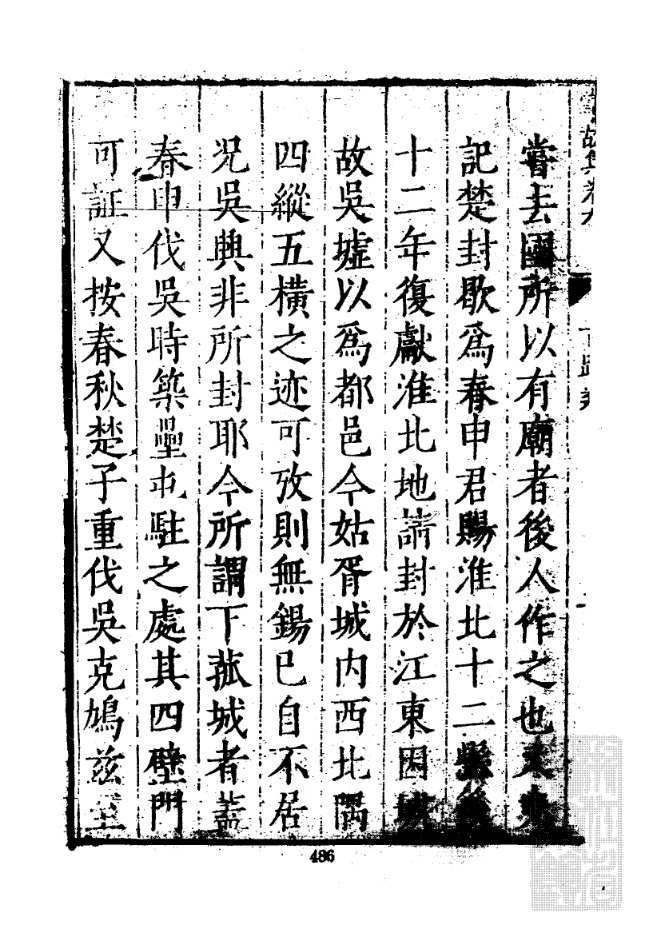 嘗去國所以有廟者後人作之也又史
記楚封歇爲春申君賜淮北十二縣後
十二年復獻淮北地請封於江東因城
故吳墟以爲都邑今姑胥城内西北隅
四縱五橫之迹可攷則無錫已自不居
况吳興非所封耶今所謂下菰城者蓋
春申伐吳時築壘屯駐之處其四壁門
可証又按春秋楚子重伐吳克鳩兹至
486